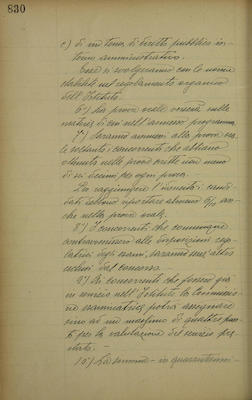 830
c) di un tema di diritto pubblico in-
terno amministrativo.
Essi si svolgeranno con le norme
stabilite nel regolamento organico
dell'Istituto.
6°) La prova orale verterà nelle
materie di cui nell'annesso programma.
7°) Saranno ammessi alla prova ora-
le soltanto i concorrenti che abbiano
ottenuto nelle prove scritte non meno
di sei decimi per ogni prova.
Per raggiungere l'idoneità i candi-
dati debbono riportare almeno 6/10 an-
che nella prova orale.
8°) I concorrenti che comunque
contravvenissero alle disposizioni rego-
latrici degli esami, saranno senz'altro
esclusi dal concorso.
9°) Ai concorrenti che fossero già
in servizio nell'Istituto la Commissio-
ne esaminatrice potrà assegnare
sino ad un massimo di quattro pun-
ti per la valutazione del servizio pre-
stato.
10°) La nomina - in